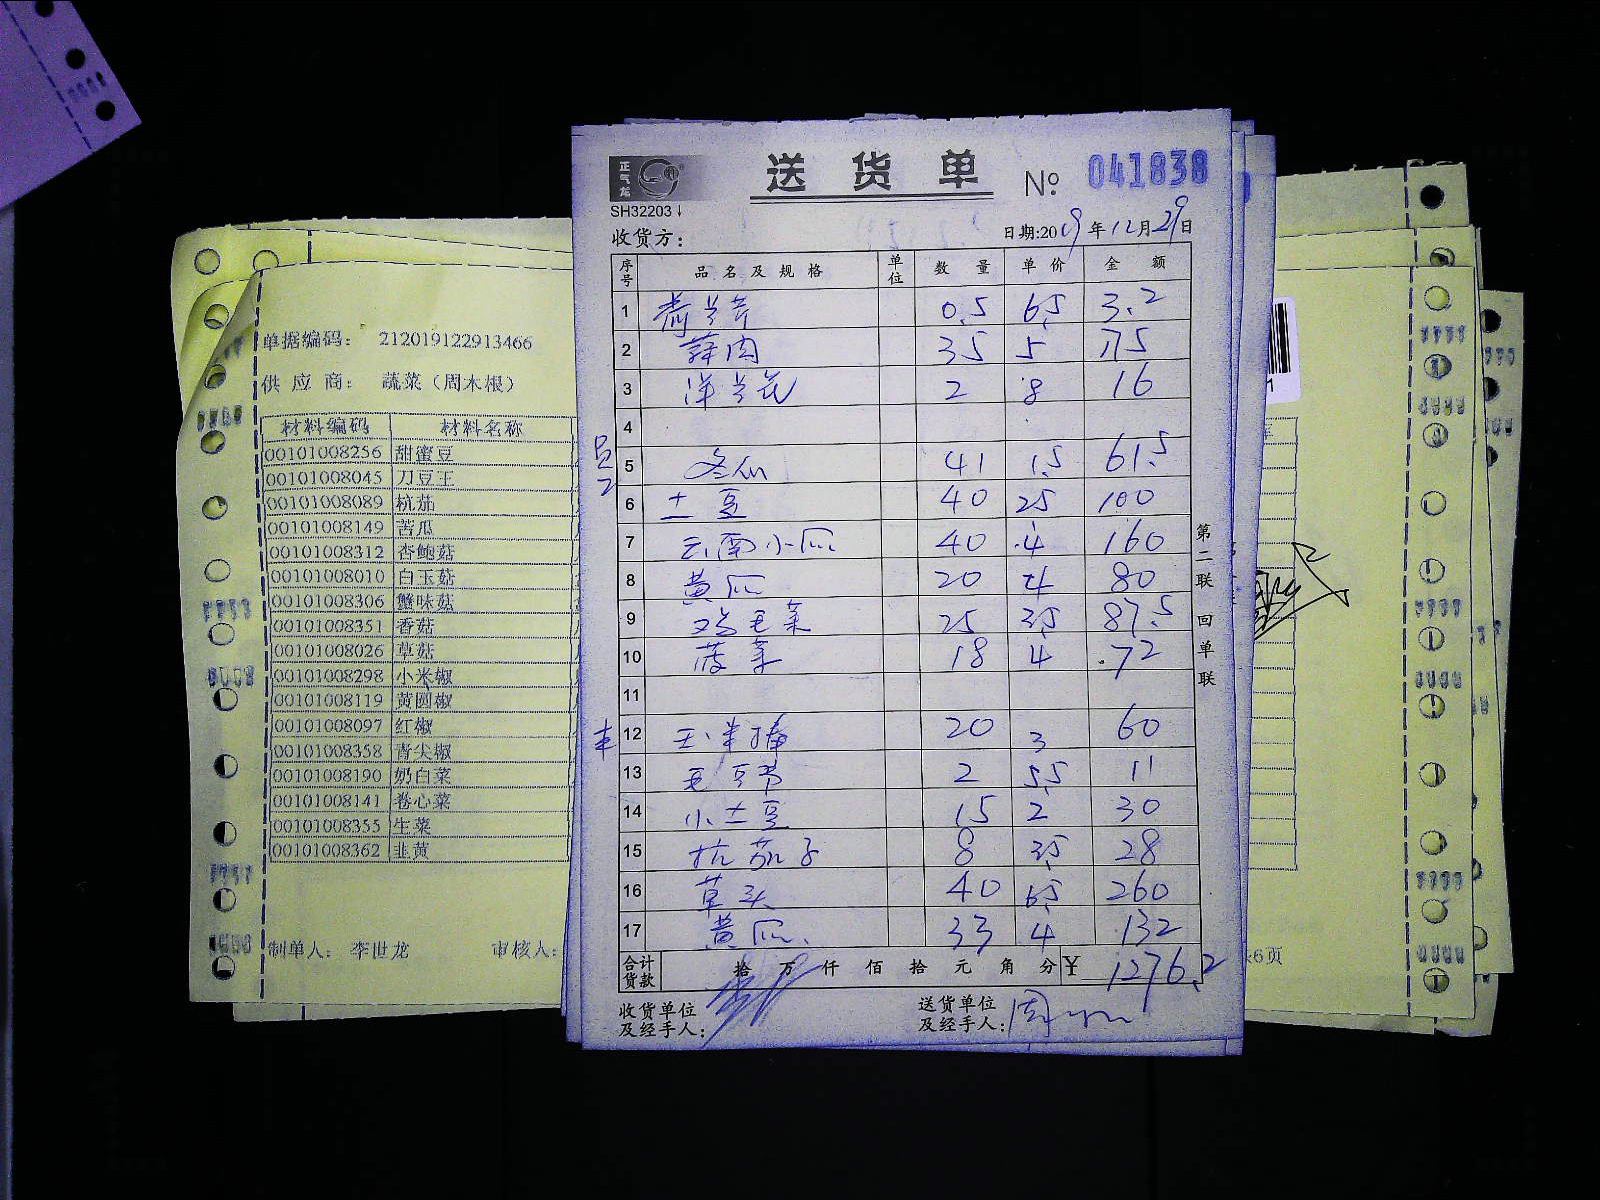 正气龙
SH32203
送货单 № 041838
收货方：
日期:2019年12月29日
序号 品名及规格 单位 数量 单价 金额
1 荷兰芹 0.5 6.5 3.2
2 蒜肉 35 5 175
3 洋兰花 2 8 16
4
5 冬瓜 41 1.5 61.5
6 土豆 40 25 100
7 云南小瓜 40 4 160
8 黄瓜 20 4 80
9 鸡毛菜 25 3.5 87.5
10 菠菜 18 4 72
11
12 20 3 60
13 毛豆节 2 5.5 11
14 小土豆 15 2 30
15 杭茄子 8 3.5 28
16 草头 40 6.5 260
17 黄瓜 33 4 132
合计货款 拾万仟佰拾元角分 ¥ 1276.2
收货单位及经手人：
送货单位及经手人：周
第二联 回单联
单据编码： 212019122913466
供应商： 蔬菜（周木根）
材料编码 材料名称
00101008256 甜蜜豆
00101008045 刀豆王
00101008089 杭茄
00101008149 苦瓜
00101008312 杏鲍菇
00101008010 白玉菇
00101008306 蟹味菇
00101008351 香菇
00101008026 草菇
00101008298 小米椒
00101008119 黄圆椒
00101008097 红椒
00101008358 青尖椒
00101008190 奶白菜
00101008141 卷心菜
00101008355 生菜
00101008362 韭黄
制单人： 李世龙 审核人:
6页